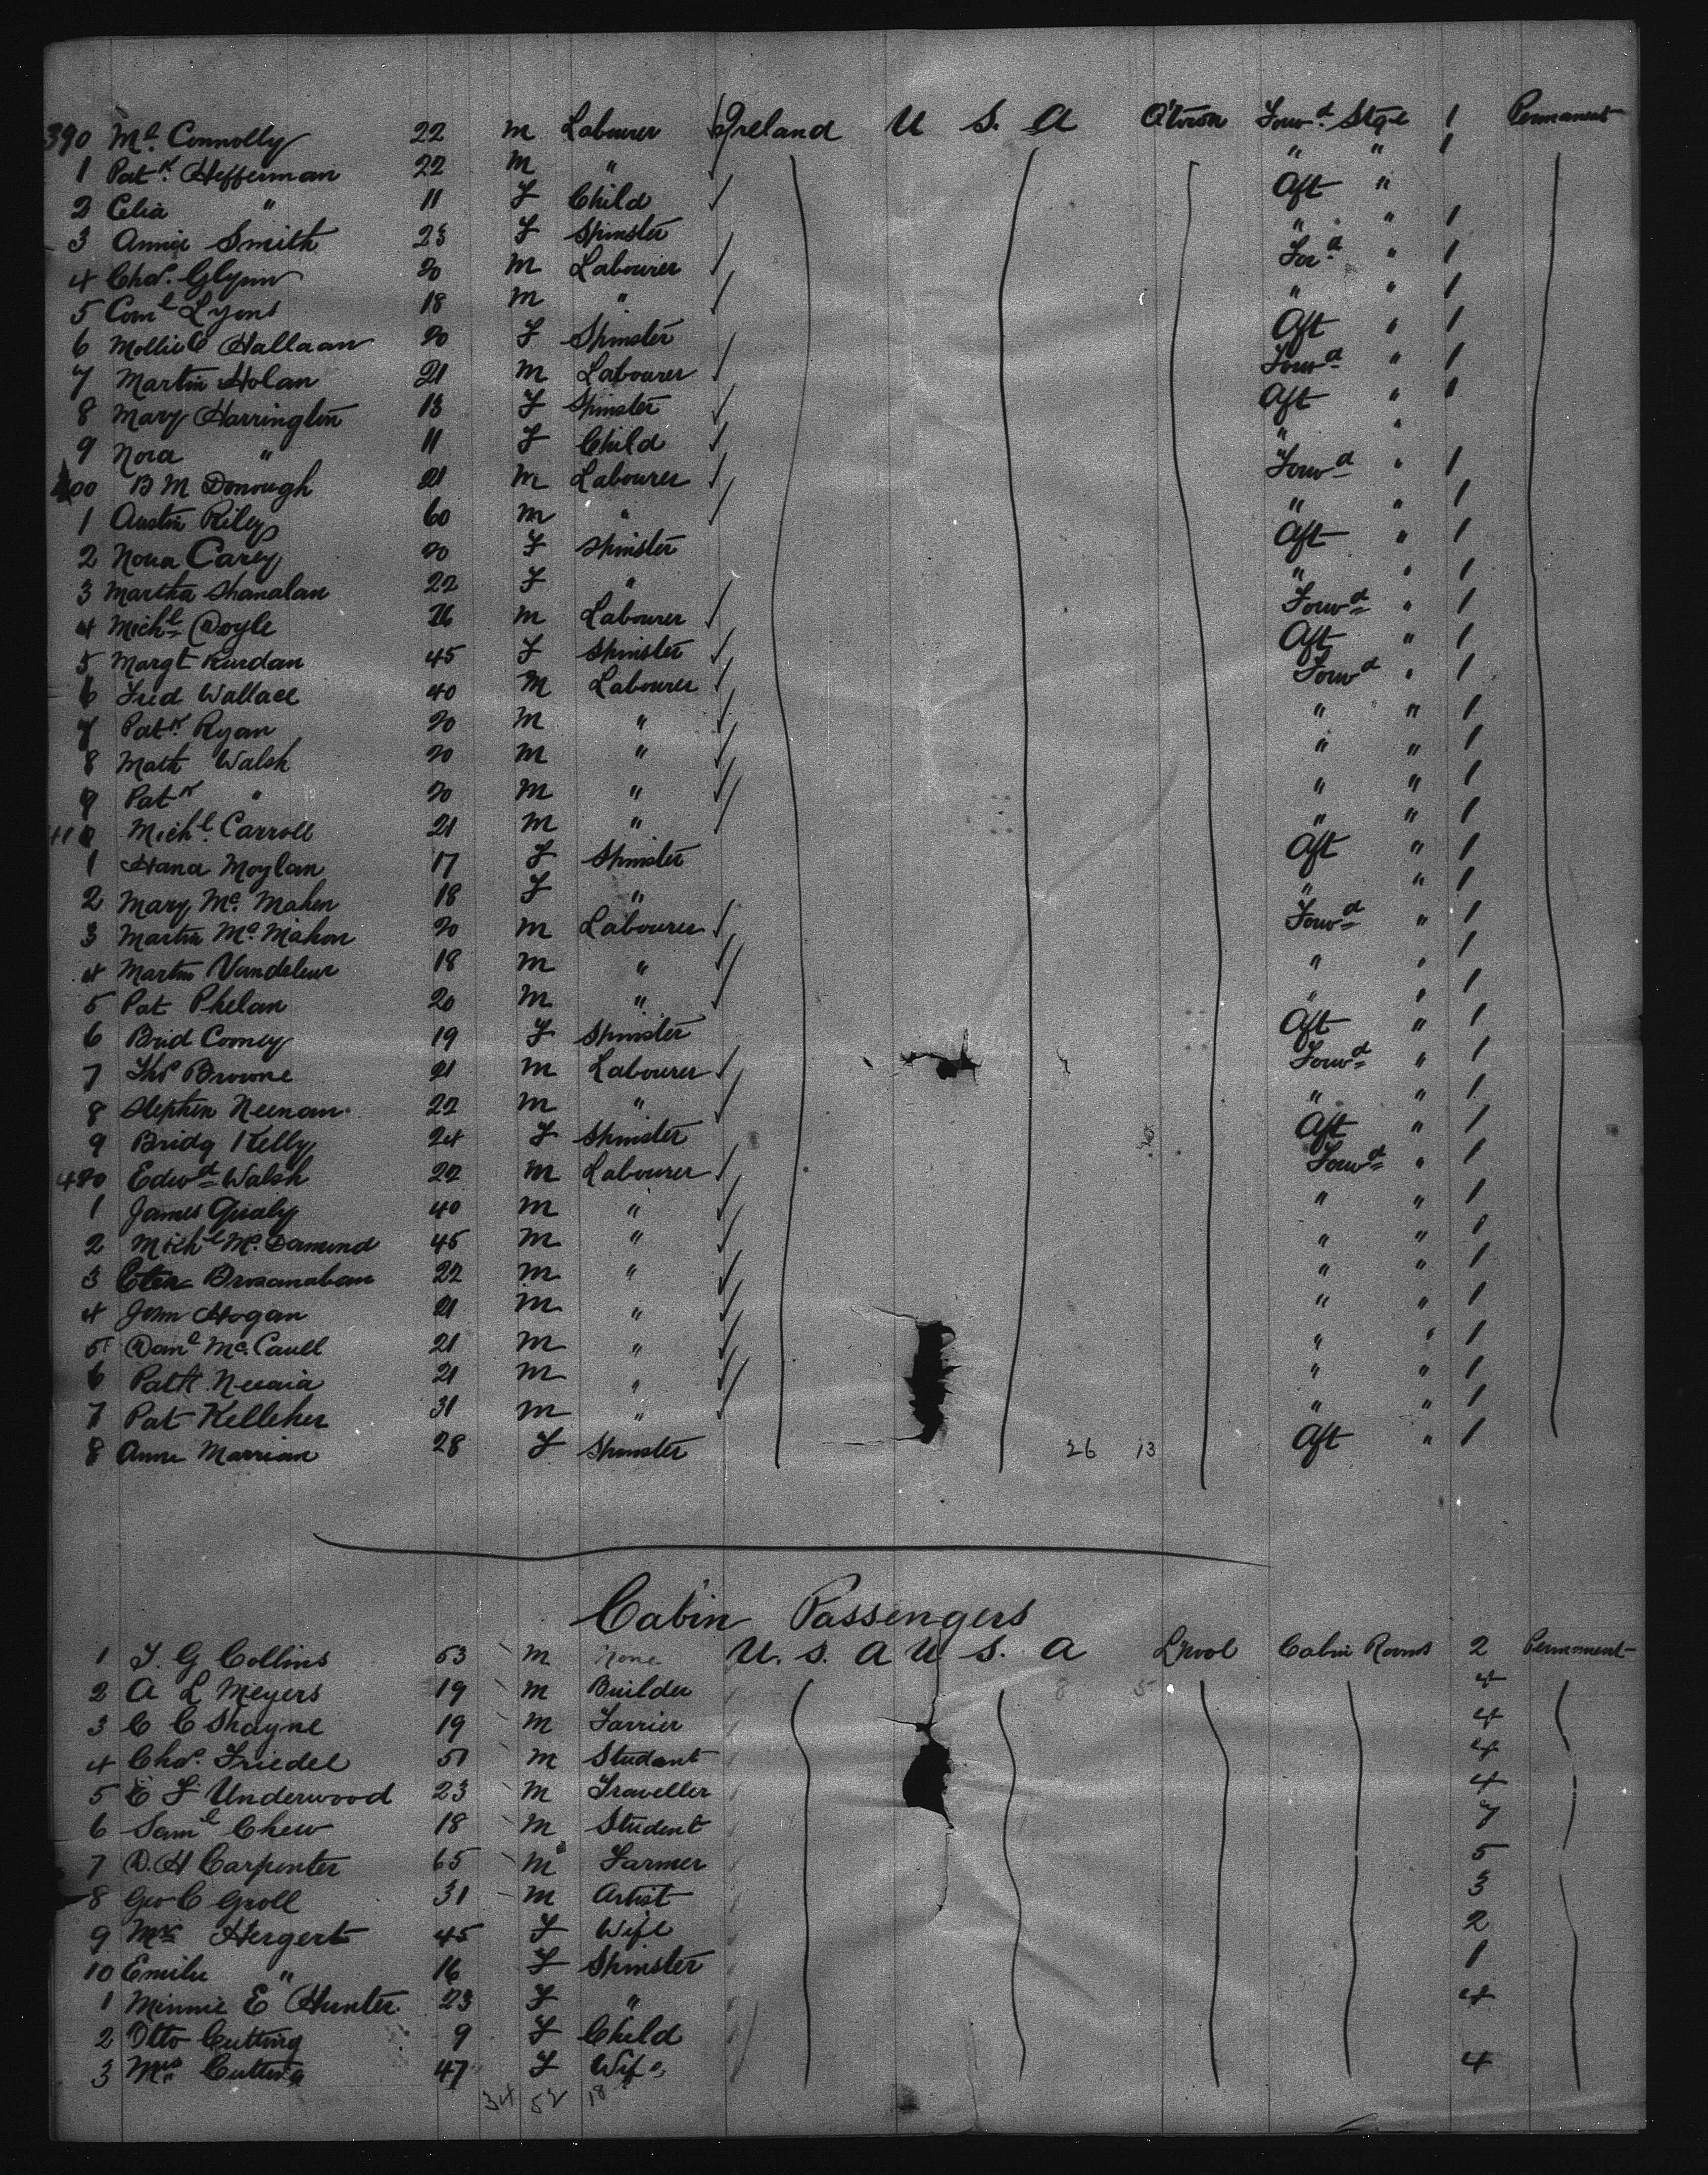 390 Md Connolly 22 m Labourer Ireland U S. A Q'town Forwd Stge 1 Permanent
1 Patk Hefferman 22 m " " " 1
2 Celia " 11 F Child Aft "
3 Annie Smith 23 F Spinster " " 1
4 Chas. Glynn 20 m Labourer For'd " 1
5 Corn'l Lyons 18 m " " " 1
6 Mollie O Hallaan 20 F Spinster Aft " 1
7 Martin Holan 21 m Labourer Forwd " 1
8 Mary Harrington 13 F Spinster Aft " 1
9 Nora " 11 F Child " "
400 B M Donough 21 m Labourer Forwd " 1
1 Austin Riley 60 m " " " 1
2 Nora Carey 20 F Spinster Aft " 1
3 Martha Shanalan 22 F " " " 1
4 Michl Doyle 26 m Labourer Forwd " 1
5 Margt Kurdan 45 F Spinster Aft " 1
6 Fred Wallace 40 M Labourer Forwd " 1
7 Patk Ryan 20 m " " " 1
8 Math Walsh 20 m " " " 1
9 Patk " 20 m " " " 1
410 Michl Carroll 21 m " " " 1
1 Hana Moylan 17 F Spinster Aft " 1
2 Mary Mc Mahon 18 F " " " 1
3 Martin Mc Mahon 20 m Labourer Forwd " 1
4 Martin Vandeleur 18 m " " " 1
5 Pat Phelan 20 m " " " 1
6 Brid Cooney 19 F Spinster Aft " 1
7 Thos Browne 21 m Labourer Forwd " 1
8 Stephen Neenan 22 m " " " 1
9 Bridg Kelly 24 F Spinster Aft " 1
420 Edwd Walsh 22 m Labourer Forwd " 1
1 James 40 m " " " 1
2 Michl Mc Damond 45 m " " " 1
3 Brosanahan 22 m " " " 1
4 John Hogan 21 m " " " 1
5 Danl Mc Caull 21 m " " " 1
6 Patk 21 m " " " 1
7 Pat Kelleher 31 m " " " 1
8 Anne Marrian 28 F Spinster 26 13 Aft " 1
Cabin Passengers
1 J. G Collins 53 m None U. S. A U S. A L'pool Cabin Rooms 2 Permanent
2 A L Meyers 19 m Builder 8 5 4
3 C C Shayne 19 m Farrier 4
4 Chas. Friedel 51 m Student 4
5 E F Underwood 23 m Traveller 4
6 Saml Chew 18 m Student 7
7 D. H Carpenter 65 m Farmer 5
8 Geo C Groll 31 m Artist 3
9 Mrs Hergert 45 F Wife 2
10 Emilie " 16 F Spinster 1
1 Minnie E Hunter 23 F " 4
2 Otto Cutting 9 F Child
3 Mrs Cutting 47 F Wife 4
34 52 18